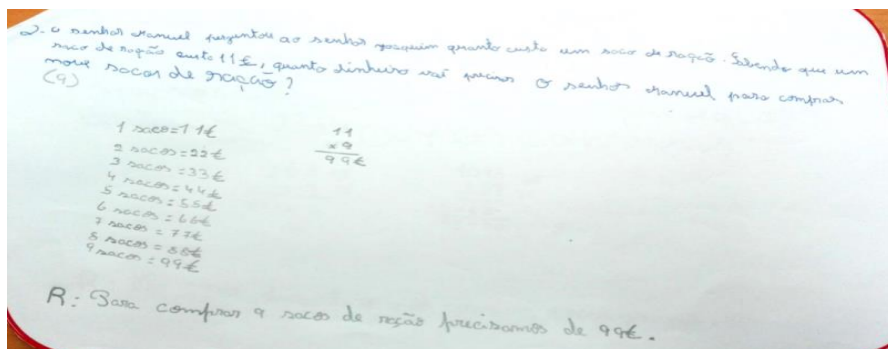 2- O senhor Manuel perguntou ao senhor Joaquim quanto custa um saco de ração. Sabendo que um
saco de ração custa 11€, quanto dinheiro vai precisar o senhor Manuel para comprar
nove sacos de ração?
(9)
1 saco=11€
2 sacos=22€
3 sacos=33€
4 sacos=44€
5 sacos=55€
6 sacos=66€
7 sacos=77€
8 sacos=88€
9 sacos=99€
11
×9
99€
R: Para comprar 9 sacos de ração precisamos de 99€.